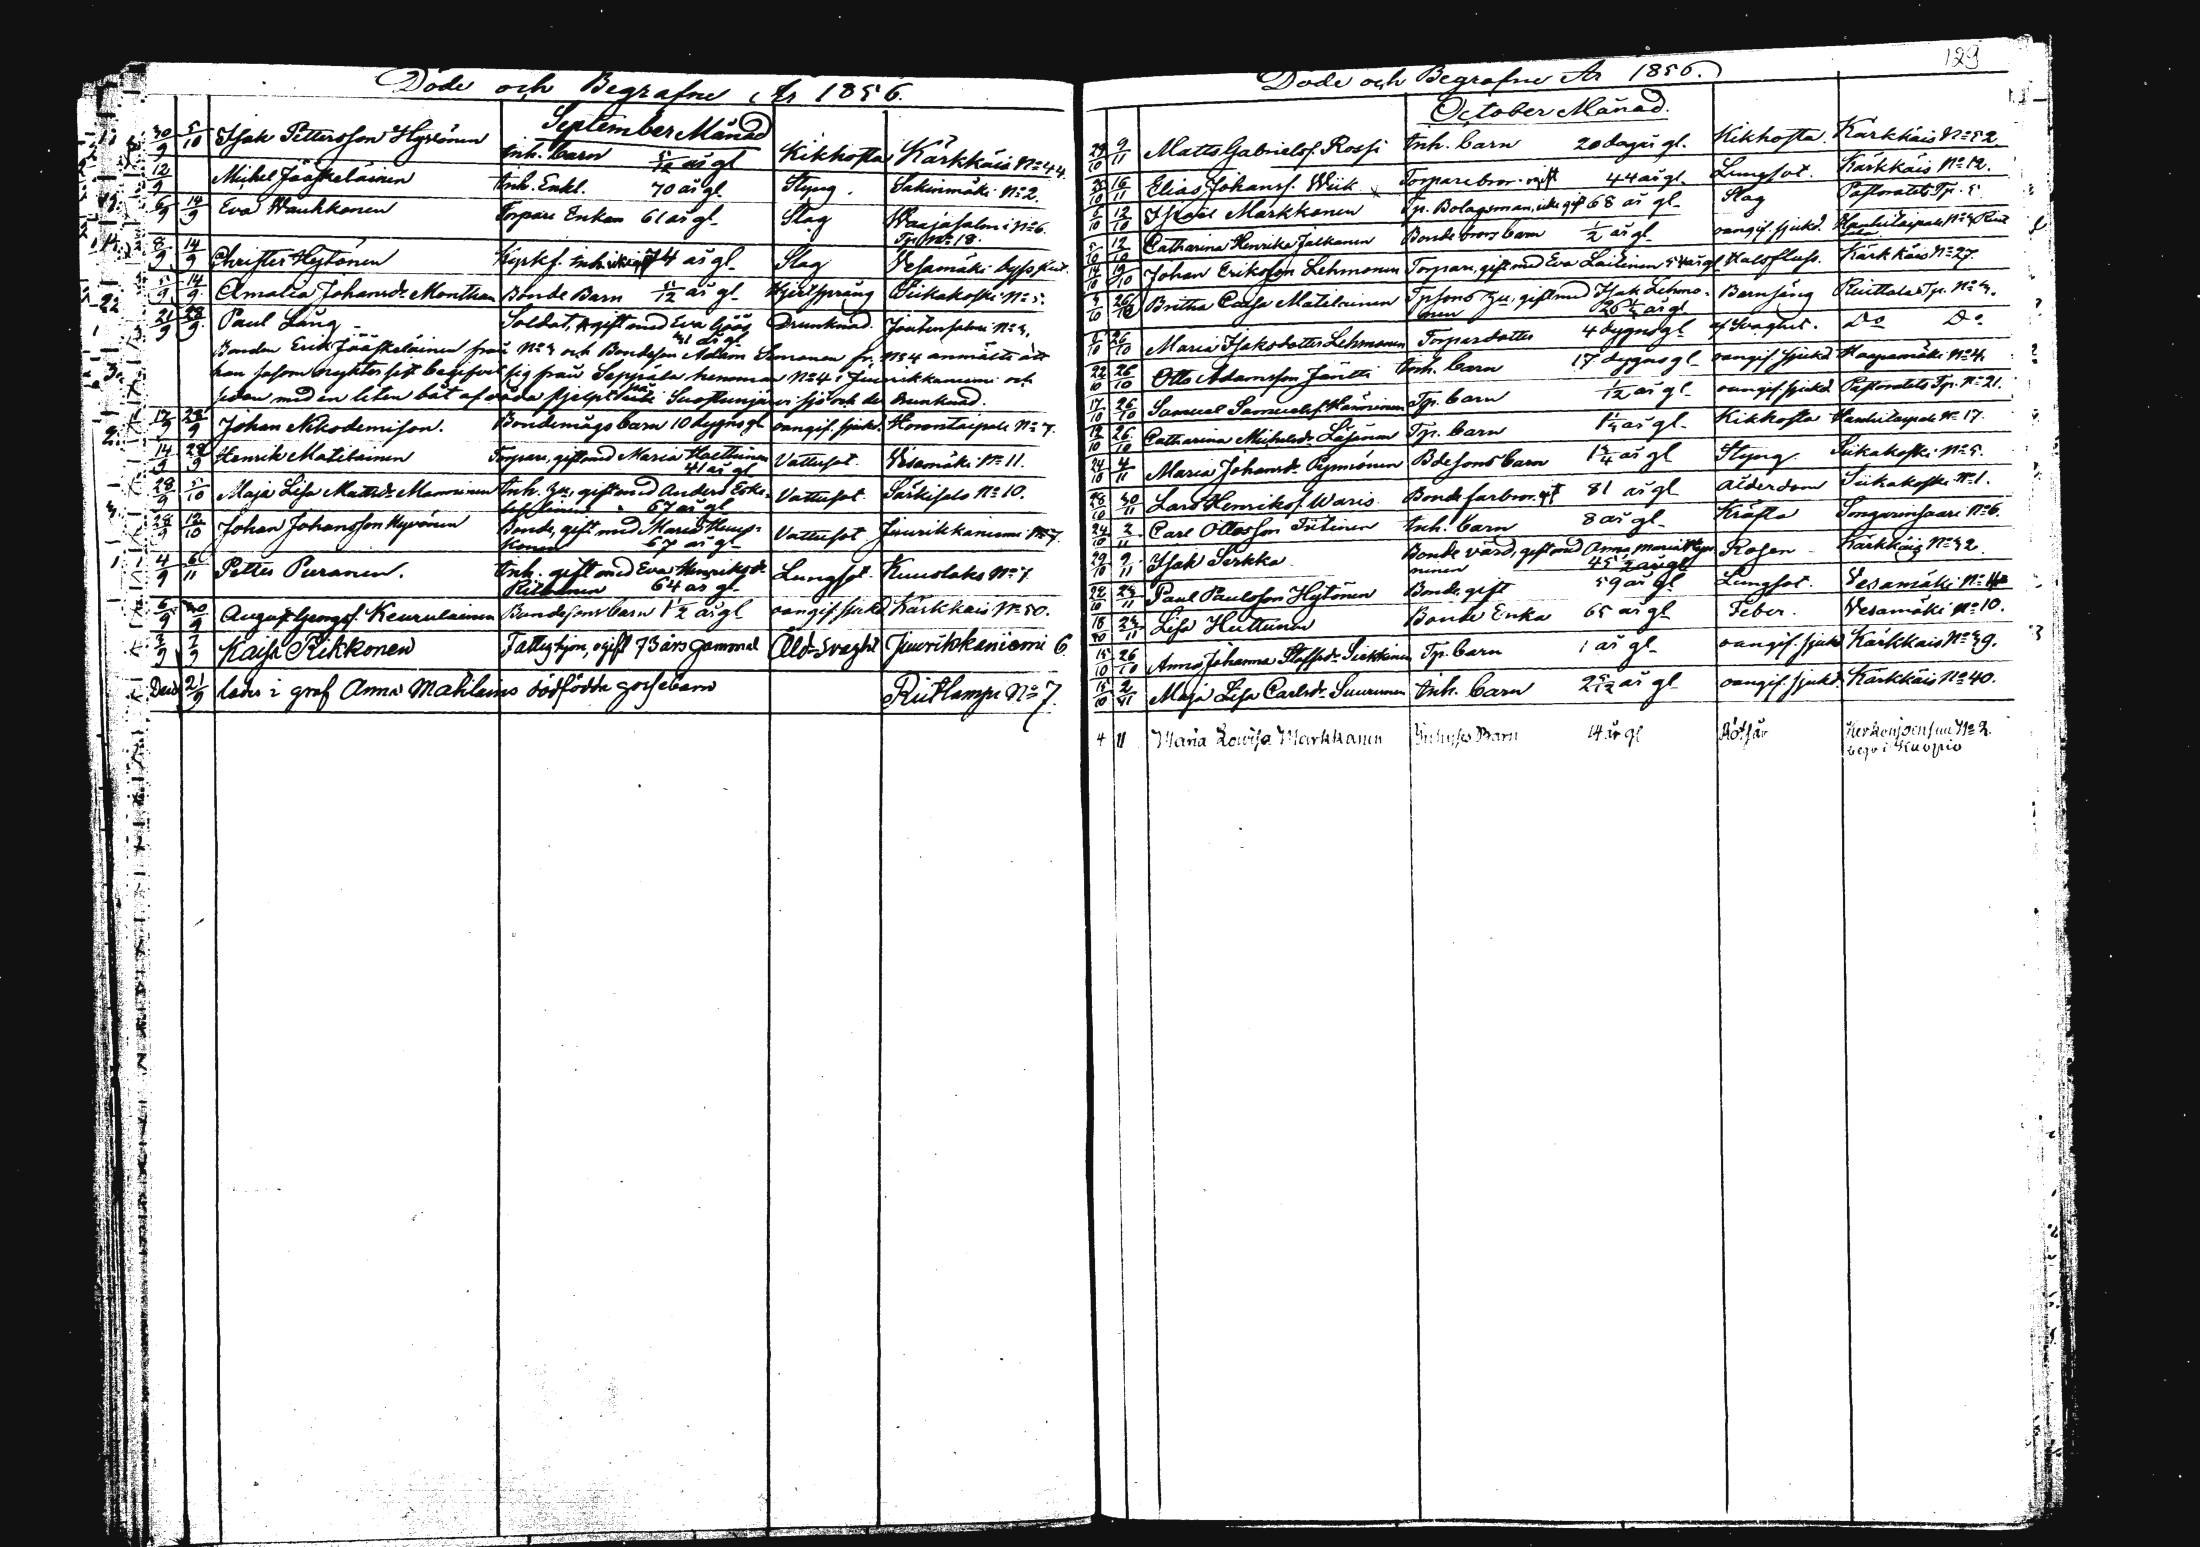 Döde och Begrafne År 1856.
September Månad
30/9 5/10 Isak Pettersson Hyvönen Inh. barn 5/12 år gl Kikhosta Kärkkäis No 44.
12/9 Michel Jääskeläinen Inh. Enkl. 70 år gl Styng. Sakinmäki No 2.
6/9 14/9 Eva Waukkonen Torpare Enkan 61 år gl Slag Waajasalmi No 6.
Tp No 18.
8/9 14/9 Christer Hytönen 74 år gl Slag Vesamäki
14/9 Amalia Johansdr Monthan Bonde Barn /12 år gl Hjertsprång Siikakoski No 5.
21/9 28/9 Paul Lång Soldat, gift med Eva Göös Drunknad. Joutsensalmi No 3.
41 år gl
Bonden Erik Jääskeläinen från No 3 och Bondeson Adam Simonen fr. No 4 anmälte att
han såsom nykter sitt begifvit sig från Seppälä hemman No 4 i Jiurikkaniemi och
sedan med en liten båt af våda stjelpt sjö och der Drunknad.
17/9 28/9 Johan Nikodemison. Bondemågs barn 10 dygns gl oangif. sjukd. Horontaipale No 7.
14/9 28/9 Henrik Matilainen Torpare, gift med Maria Hoettinen Vattusot. Vesamäki No 11.
41 år gl
28/9 5/10 Maja Lisa Mattsdr Manninen Inh. hu, gift med Anders Eske- Vattusot. Särkisalo No 10.
67 år gl
28/9 12/10 Johan Johansson Hyvönen Bonde, gift med Maria Kaup- Vattusot Jiurikkaniemi No 7.
konen 67 år gl
4/9 6/11 Petter Puranen. Inh. gift med Eva Henriksdr Lungsot. Kuuslaks No 7
64 år gl
6/9 August Georgs. Keurulainen Bondesons barn 1 1/2 år gl oangif. sjukd Kärkkäis No 50.
Kaisa Rikkonen Fattighjon, ogift 73 års gammal Åld. svaght Jiurikkaniemi 6
Den 21/9 lades i graf Anna Mahlains dödfödda gossebarn Riitlampi No 7.
129
Döde och Begrafne År 1856.
October Månad.
29/10 9/11 Matts Gabrielss. Rossi Inh. barn 20 dagar gl. Kikhosta. Kärkkäis No 52
16/11 Elias Johanss. Wiik Torparebror. ogift 44 år gl. Lungsot. Kärkkäis No 12.
12/10 Markkonen Tp. Bolagsman, icke gift 68 år gl Slag Pastoratets Tp. 5
12/10 Catharina Henrika Jalkanen Bonde brors barn 1/2 år gl oangif. sjukd. Hankataipale No 4
14/10 19/10 Johan Eriksson Lehmonen Torpare, gift med Eva Laitinen 54 år gl Halsfluss. Kärkkäis No 27.
26/10 Britha Caisa Matilainen Tpsons hu, gift med Isak Lehmo- Barnsäng Riuttala Tp. No 4.
nen 26 år gl
6/10 26/10 Maria Isaksdotter Lehmonen Torparedotter 4 dygns gl af Svaghet. Do Do
22/10 26/10 Otto Adamsson Jäntti Inh. barn 17 dygns gl oangif. sjukd Haapamäki No 4.
17/10 26/10 Samuel Samuelss. Hänninen Tp. barn 1/12 år gl oangif. sjukd. Pastoratets Tp. No 21.
19/10 26/10 Catharina Michelsdr Läsönen Tp. barn år gl Kikhosta Hankataipale No 17.
24/10 4/11 Maria Johansdr Pynnönen Bdesons barn 1 3/4 år gl Styng Siikakoski No 5.
28/10 30/11 Lars Henrikss. Waris Bonde farbror. gift 81 år gl ålderdom Siikakoski No 1.
24/10 2/11 Carl Ottosson Tiitinen Inh. barn 8 år gl Kräfta Songarinsaari No 6.
29/10 9/11 Isak Serkka Bonde värd, gift med Anna Maria Rosen Kärkkäis No 32
ninen 45 1/2 år gl
28/10 23/11 Paul Paulsson Hytönen Bonde, gift 59 år gl Lungsot. Vesamäki No 4
18/10 23/11 Lisa Huttunen Bonde Enka 65 år gl Feber. Vesamäki No 10.
15/10 26/10 Anna Johanna Staffsdr Siekkinen Tp. barn 1 år gl oangif. sjukd Kärkkäis No 39.
15/10 2/11 Maja Lisa Carlsdr Suurunen Inh. barn 2 5/12 år gl oangif. sjukd. Kärkkäis No 40.
4 11 Maria Lowisa Markkanen Inhyses Barn 14 år gl Rötsår Kerkonjoensuu No 2.
begr i Kuopio